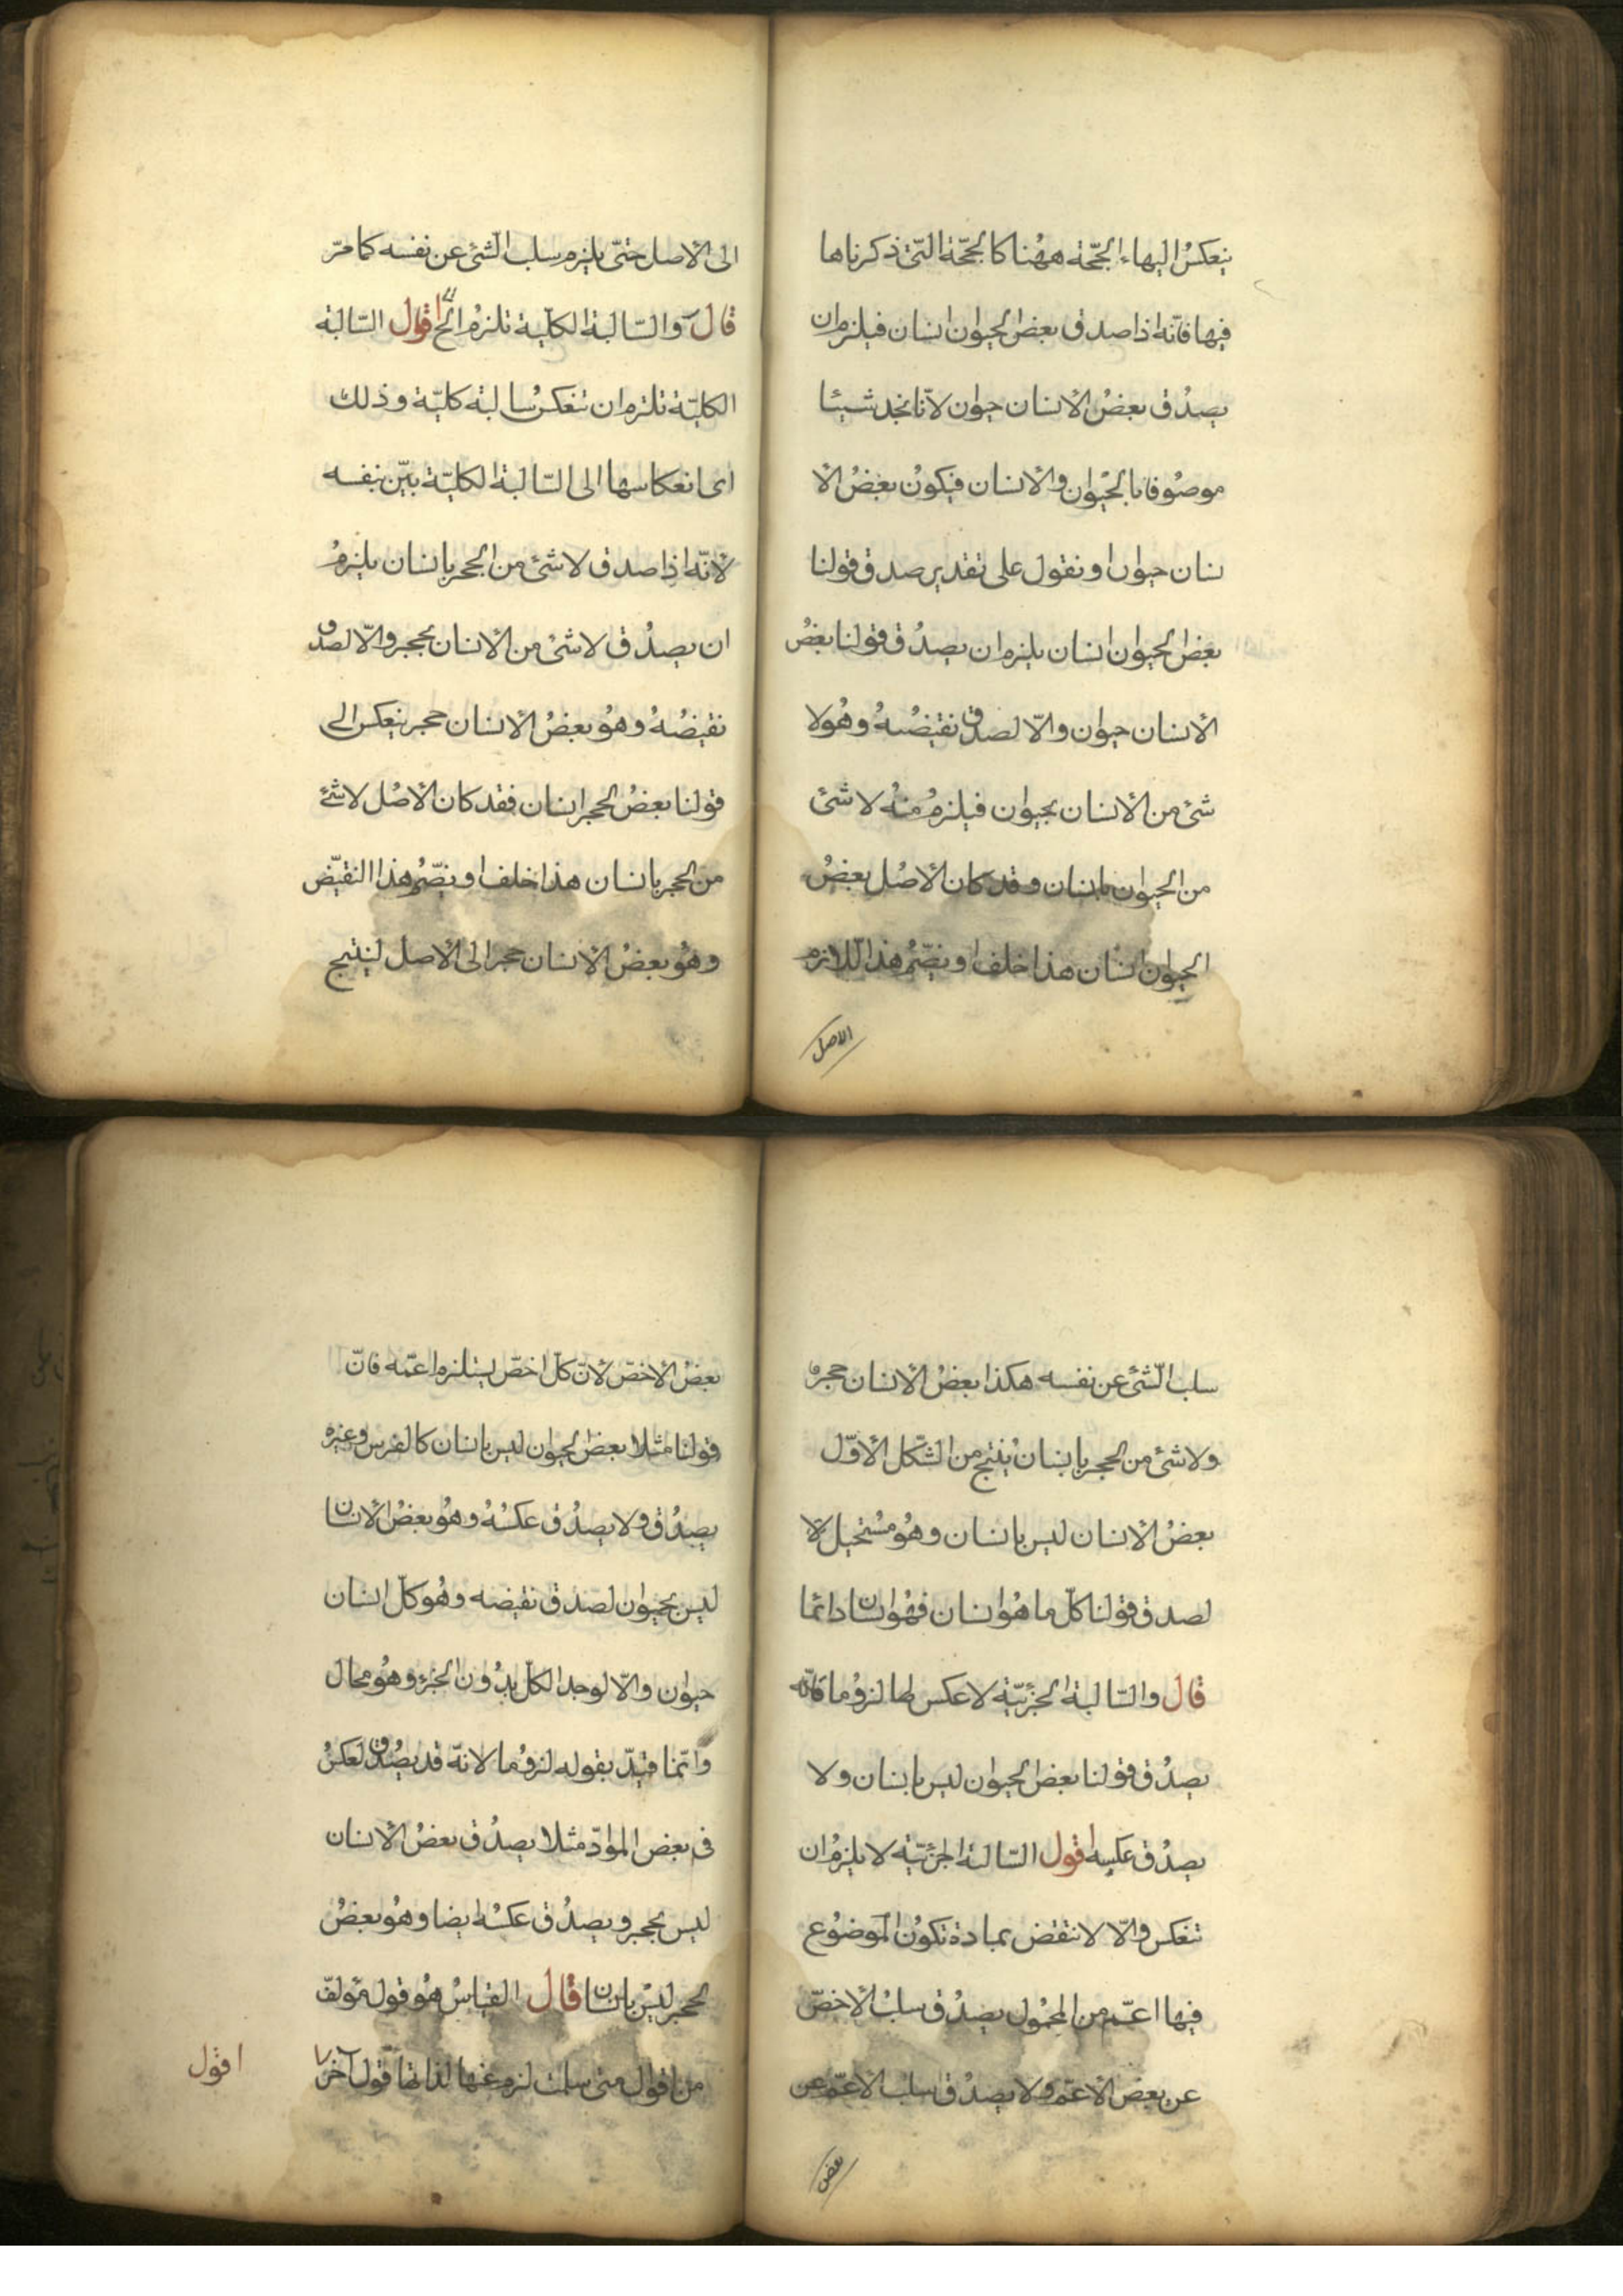 ينعكسُ اليهاء الحجّة ههُنا كالحجّة الّتى ذكرناها
فيها فانّه اذا صدق بعضُ الحيوان انسان فيلزم ان
يصدُق بعضُ الأنسان حيوان لأنّا نجد شيئا
موصُوفا بالحيوان والأنسان فيكونُ بعضُ الأ
نسان حيوان او نقول على تقدير صدق قولنا
بعضُ الحيوان انسان يلزم ان يصدُق قولنا بعضُ
الأنسان حيوان والّا لصدق نقيضُهُ وهُو لا
شئ من الأنسان بحيوان فيلزمُ منهُ لا شئ
من الحيوان بانسان وقد كان الأصُل بعضُ
الحيوان انسان هذا خلف او نضّمُ هذا اللازم
الاصل
الى الأصل حتّى يلزم سلب الشئ عن نفسه كما مرّ
قال والسّالبة الكلّية تلزمُ الخ اقول السّالبة
الكليّة تلزم ان تنعكسُ سالبة كليّة وذلك
اى انعكاسها الى السّالبة الكليّة بيّن بنفسه
لأنّه اذا صدق لا شئ من الحجر بانسان يلزمُ
ان يصدُق لا شئ من الأنسان بحجر والّا لصدق
نقيضُهُ وهُو بعضُ الأنسان حجر ينعكس الى
قولنا بعضُ الحجر انسان فقد كان الأصُل لا شئ
من الحجر بانسان هذا خلف او نضّمُ هذا النقيّض
وهُو بعضُ الأنسان حجر الى الأصل لينتج
سلب الشّئ عن نفسه هكذا بعضُ الأنسان حجر
ولا شئ من الحجر بانسان يُنتج من الشّكل الأوّل
بعضُ الأنسان ليس بانسان وهُو مُستحيل لأ
لصدق قولنا كلّ ما هُو انسان فهُو انسان دائما
قال والسّالبة الجزئيّة لا عكس لها لزوُما فانّه
يصدُق قولنا بعض الحيوان ليس بانسان ولا
يصدُق عكسه اقول السّالبة الجزئيّة لا يلزمُ ان
تنعكس والّا لانتقض بمادة تكونُ الموضُوع
فيها اعمّ من المحُمول يصدُق سلبُ الأخصّ
عن بعض الأعمّ ولا يصدُق سلبُ الأعمّ عن
بعض
بعضُ الأخصّ لأنّ كلّ اخصّ يستلزم اعمّه فانّ
قولنا مثلا بعض الحيوان ليس بانسان كالفرس وغيره
يصدُق ولا يصدُق عكسُهُ وهُو بعضُ الأنسان
ليس بحيوان لصدق نقيضه وهُو كلّ انسان
حيوان والّا لوجد الكلّ بدُون الجزء وهُو محال
وانّما قيّد بقوله لزوُما لانهّ قد يصُدق لعكسُ
فى بعض الموادّ مثلا يصدُق بعضُ الأنسان
ليس بحجر ويصدُق عكسُه ايضا وهُو بعضُ
الحجر ليسَ بانسان قال القياسُ هُو قول مؤلفّ
من اقوال متى سلمت لزم عنها لذاتها قول آخر
اقول